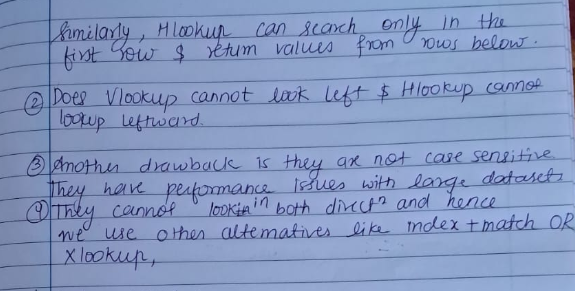 Similarly, Hlookup can search only in the
first row & return values from rows below.
② Does Vlookup cannot look left & Hlookup cannot
lookup leftward.
③ Another drawback is they are not case sensitive
They have performance issues with large datasets
④ They cannot look in both directn and hence
we use other alternatives like index + match OR
Xlookup,